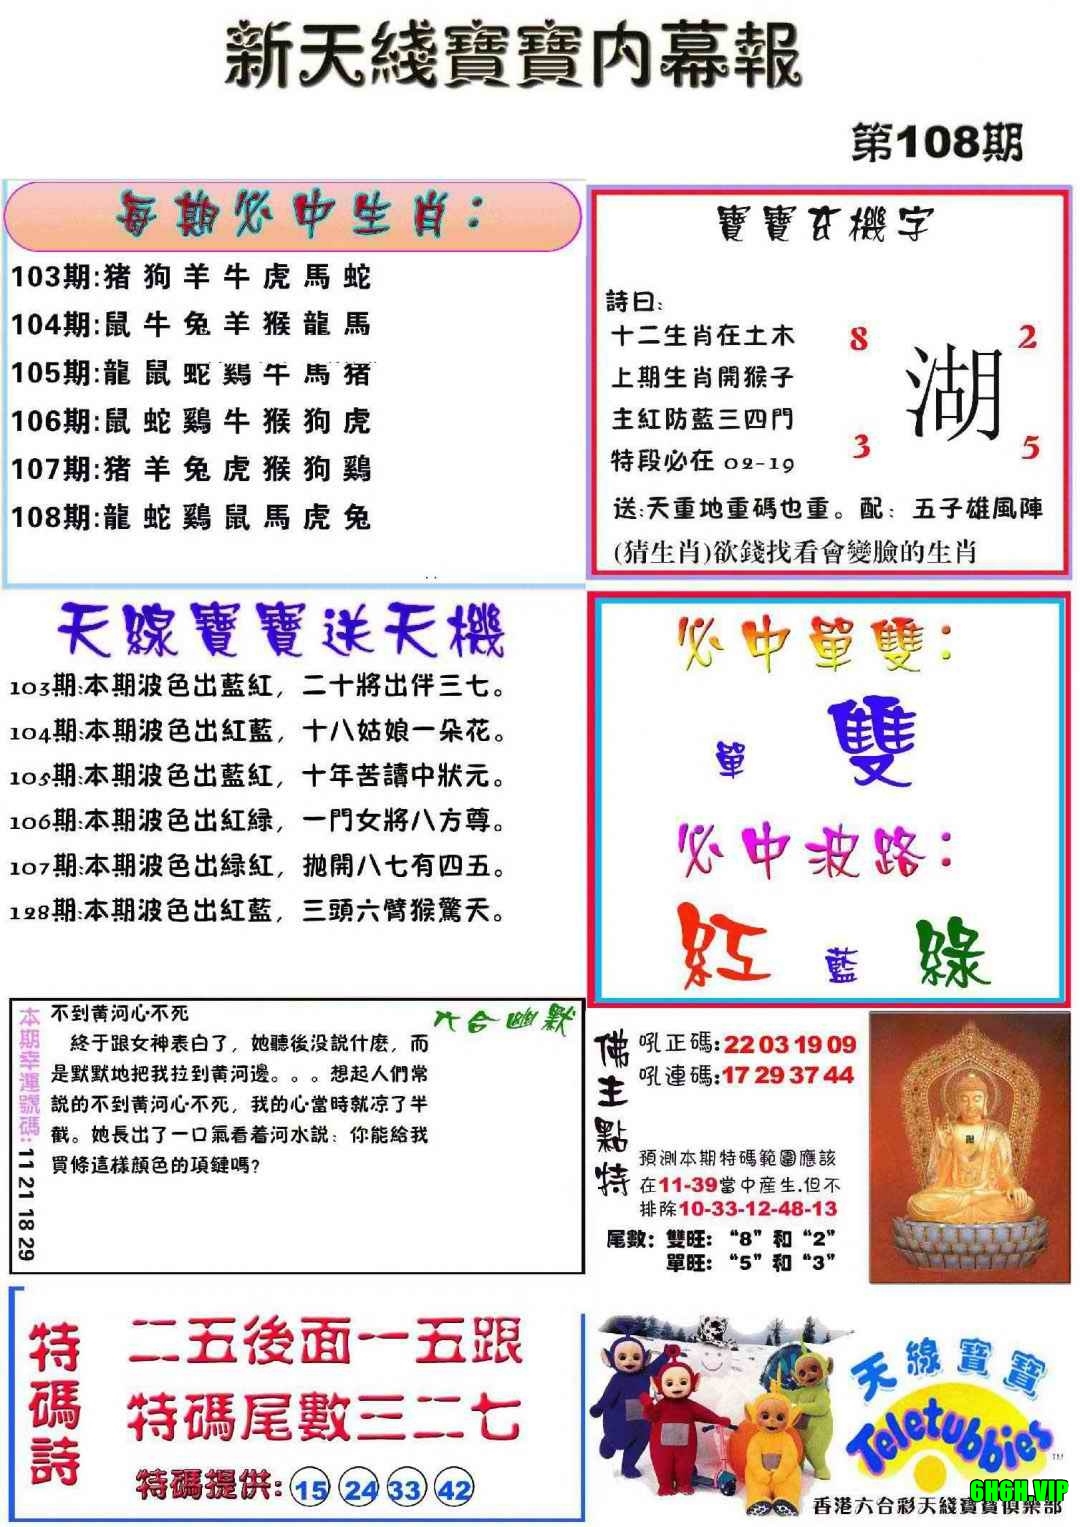 新天綫寶寶内幕報
第108期
每期必中生肖：
103期:猪狗羊牛虎馬蛇
104期:鼠牛兔羊猴龍馬
105期:龍鼠蛇鷄牛馬猪
106期:鼠蛇鷄牛猴狗虎
107期:猪羊兔虎猴狗鷄
108期:龍蛇鷄鼠馬虎兔
寶寶玄機字
詩曰:
十二生肖在土木
上期生肖開猴子
主紅防藍三四門
特段必在 02-19
8 2
湖
3 5
送:天重地重碼也重。配：五子雄風陣
(猜生肖)欲錢找看會變臉的生肖
天線寶寶送天機
103期:本期波色出藍紅，二十將出伴三七。
104期:本期波色出紅藍，十八姑娘一朵花。
105期:本期波色出藍紅，十年苦讀中狀元。
106期:本期波色出紅緑，一門女將八方尊。
107期:本期波色出緑紅，拋開八七有四五。
128期:本期波色出紅藍，三頭六臂猴驚天。
必中單雙：
單 雙
必中波路：
紅 藍 綠
本期幸運號碼:11 21 18 29
六合幽默
不到黄河心不死
終于跟女神表白了，她聽後没説什麽，而
是默默地把我拉到黄河邊。。。想起人們常
説的不到黄河心不死，我的心當時就凉了半
截。她長出了一口氣看着河水説：你能給我
買條這樣顔色的項鍵嗎?
佛主點特
吼正碼:22 03 19 09
吼連碼:17 29 37 44
預測本期特碼範圍應該
在11-39當中産生.但不
排除10-33-12-48-13
尾數：雙旺：“8”和“2”
單旺：“5”和“3”
特碼詩
二五後面一五跟
特碼尾數三二七
特碼提供: 15 24 33 42
天線寶寶
Teletubbies
TM
6H6H.VIP
香港六合彩天綫寶寶俱樂部